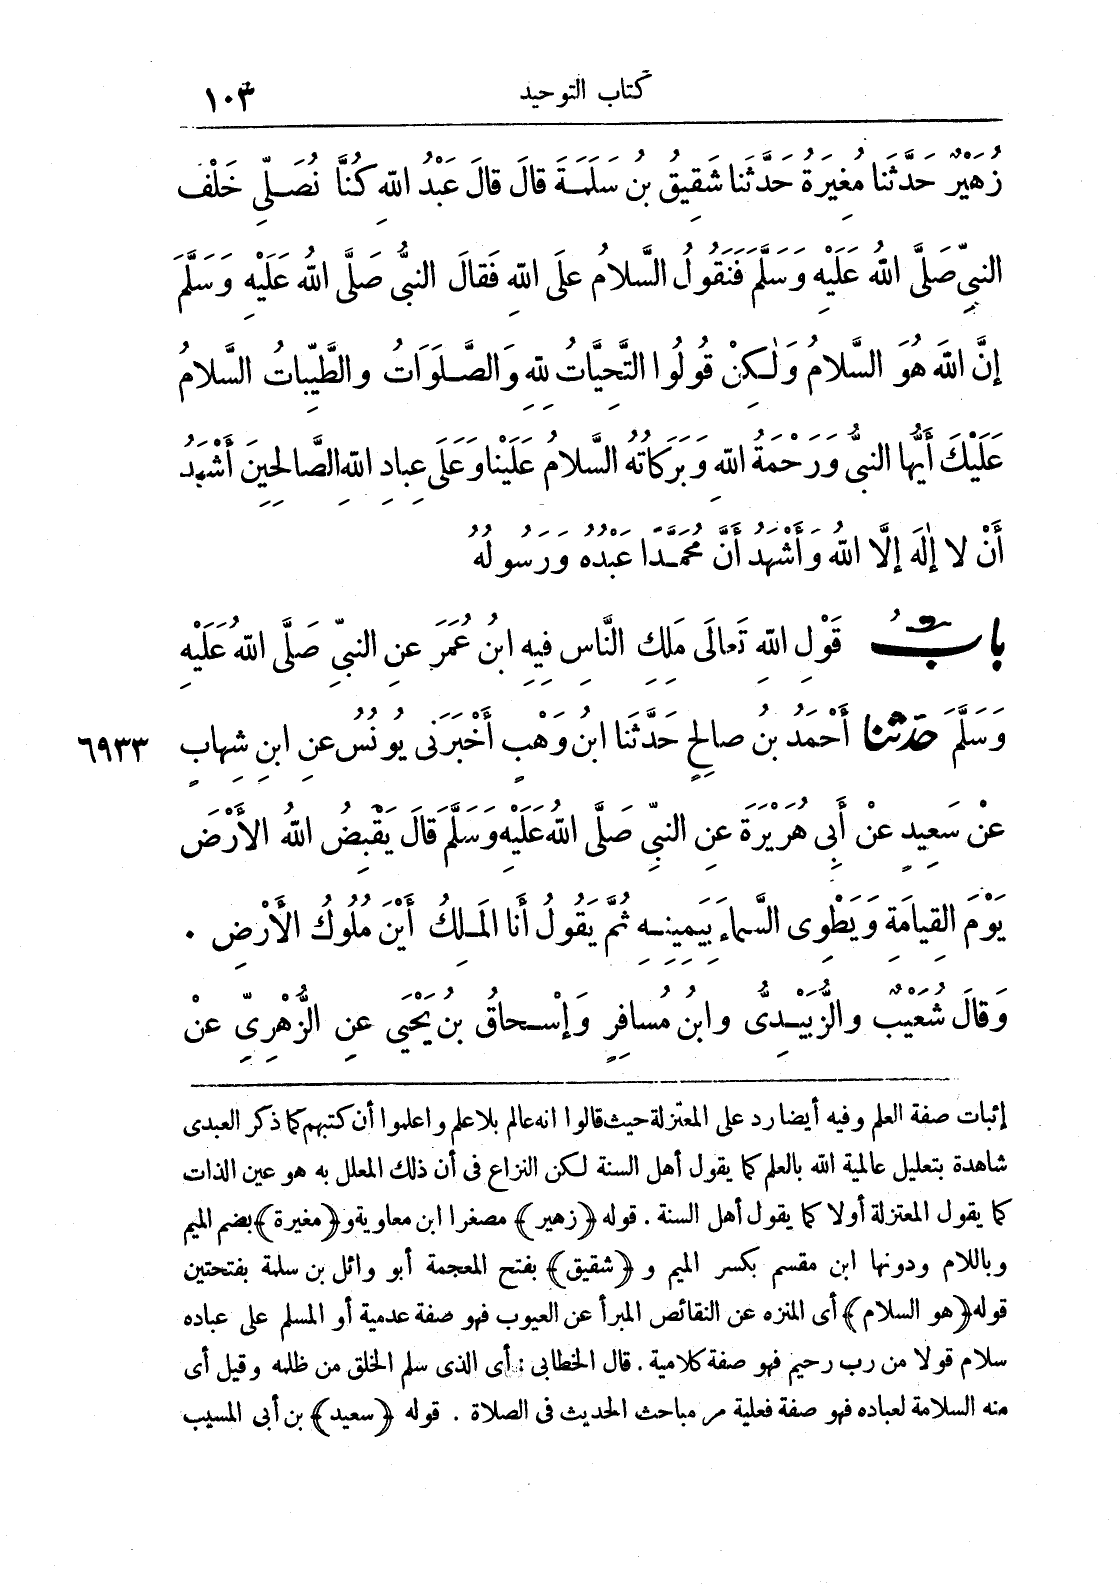 ١٠٣ كتاب التوحيد
زُهَيْرٌ حَدَّثَنَا مُغِيرَةُ حَدَّثَنَا شَقِيقُ بنُ سَلَمَةَ قالَ قالَ عَبْدُ اللهِ كُنَّا نُصَلِّي خَلْفَ
النبيِّ صَلَّى اللهُ عَلَيْهِ وَسَلَّمَ فَنَقُولُ السَّلامُ علَى اللهِ فَقالَ النبيُّ صَلَّى اللهُ عَلَيْهِ وَسَلَّمَ
إنَّ اللهَ هُوَ السَّلامُ وَلٰكِنْ قُولُوا التَّحِيَّاتُ للهِ وَالصَّلَوَاتُ والطَّيِّباتُ السَّلامُ
عَلَيْكَ أَيُّها النبيُّ وَرَحْمَةُ اللهِ وَبَرَكاتُهُ السَّلامُ عَلَيْنا وَعَلَى عِبادِ اللهِ الصَّالِحِينَ أَشْهَدُ
أَنْ لا إِلٰهَ إِلَّا اللهُ وَأَشْهَدُ أَنَّ مُحَمَّدًا عَبْدُهُ وَرَسُولُهُ
بابُ قَوْلِ اللهِ تَعالَى مَلِكِ النَّاسِ فِيهِ ابنُ عُمَرَ عنِ النبيِّ صَلَّى اللهُ عَلَيْهِ
وَسَلَّمَ حدثنا أَحْمَدُ بنُ صالحٍ حَدَّثَنا ابنُ وَهْبٍ أَخْبَرَنى يُونُسُ عنِ ابنِ شِهابٍ ٦٩٣٣
عنْ سَعِيدٍ عنْ أَبِى هُرَيْرَةَ عنِ النبيِّ صَلَّى اللهُ عَلَيْهِ وَسَلَّمَ قَالَ يَقْبِضُ اللهُ الأَرْضَ
يَوْمَ القِيامَةِ وَيَطْوِى السَّماءَ بِيَمِينِهِ ثُمَّ يَقُولُ أَنا المَلِكُ أَيْنَ مُلُوكُ الأَرْضِ .
وَقالَ شُعَيْبٌ والزُّبَيْدِىُّ وابنُ مُسافِرٍ وَإسْحاقُ بنُ يَحْيَى عنِ الزُّهْرِىِّ عنْ
إثبات صفة العلم وفيه أيضا رد على المعتزلة حيث قالوا انه عالم بلا علم واعلموا أن كتبهم كما ذكر العبدى
شاهدة بتعليل عالمية الله بالعلم كما يقول أهل السنة لكن النزاع فى أن ذلك المعلل به هو عين الذات
كما يقول المعتزلة أولا كما يقول أهل السنة . قوله ﴿زهير﴾ مصغرا ابن معاوية و﴿مغيرة﴾ بضم الميم
وباللام ودونها ابن مقسم بكسر الميم و ﴿شقيق﴾ بفتح المعجمة أبو وائل بن سلمة بفتحتين
قوله ﴿هو السلام﴾ أى المنزه عن النقائص المبرأ عن العيوب فهو صفة عدمية أو المسلم على عباده
سلام قولا من رب رحيم فهو صفة كلامية . قال الخطابى : أى الذى سلم الخلق من ظلمه وقيل أى
منه السلامة لعباده فهو صفة فعلية مر مباحث الحديث فى الصلاة . قوله ﴿سعيد﴾ بن أبى المسيب